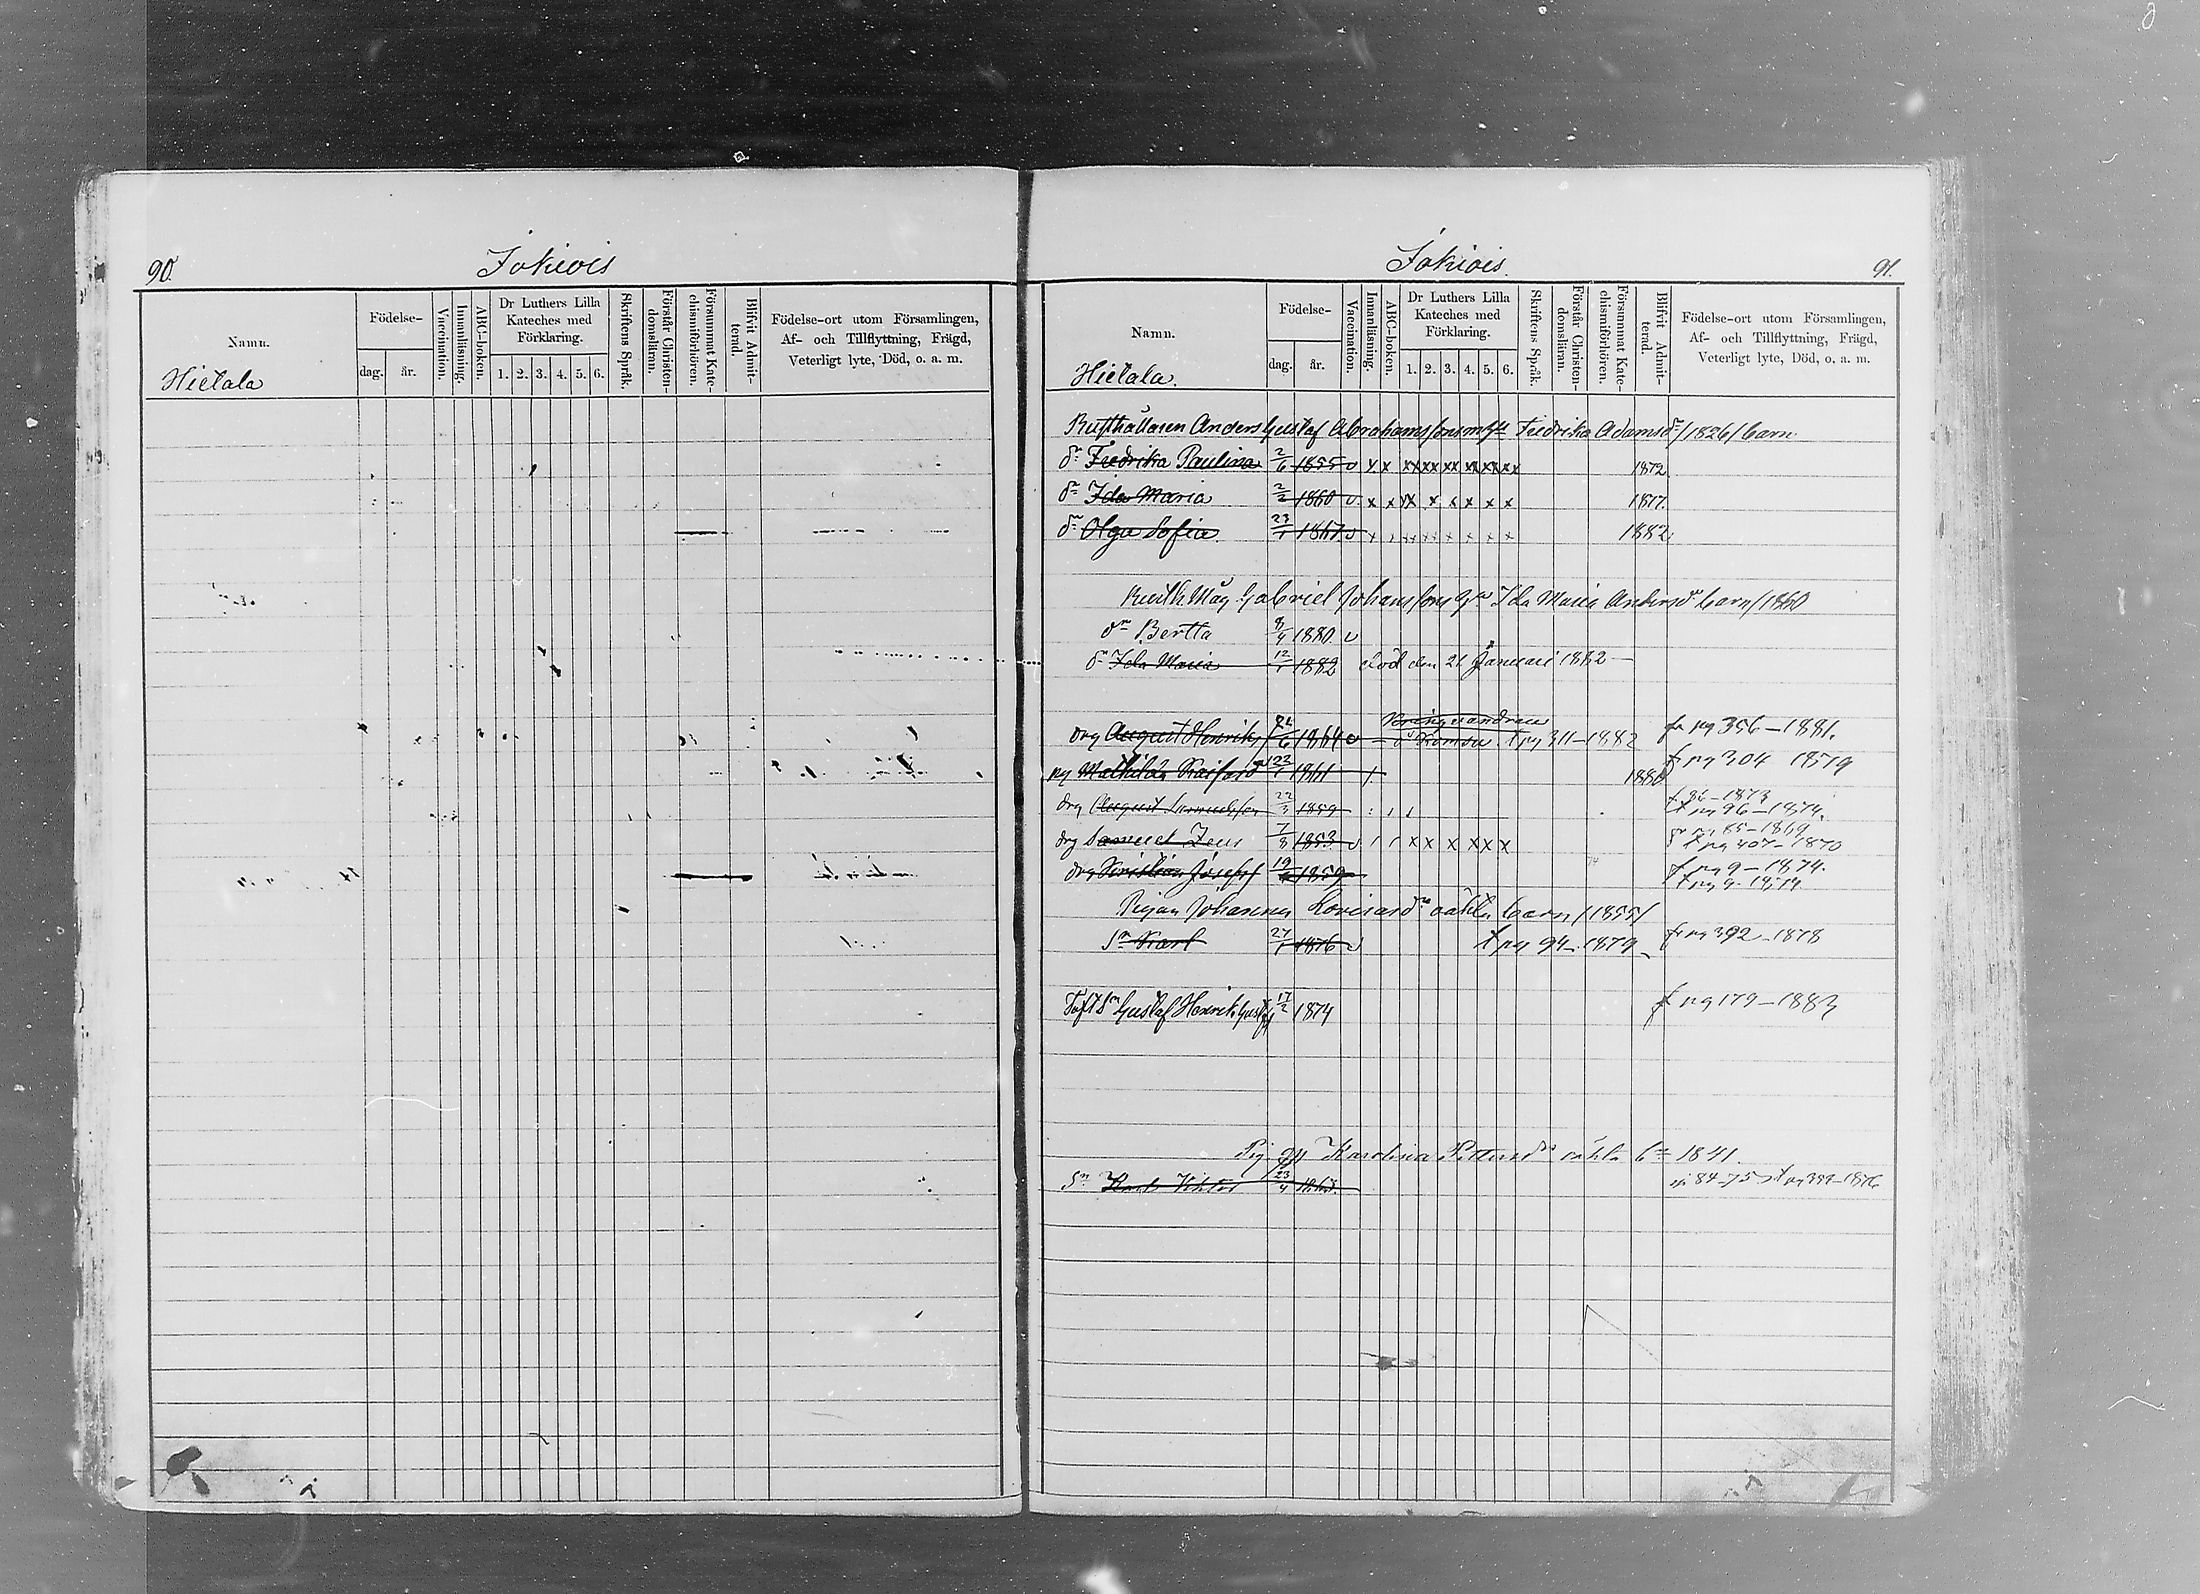 90.
Jokiois
Namn.
Hietala
Födelse-
dag.
år.
Vaccination.
Innanläsning.
ABC-boken.
Dr Luthers Lilla
Kateches med
Förklaring.
1. 2. 3. 4. 5. 6.
Skriftens Språk.
Förstår Christen-
domsläran.
Försummat Kate-
chismiförhören.
Blifvit Admit-
terad.
Födelse-ort utom Församlingen,
Af- och Tillflyttning, Frägd,
Veterligt lyte, Död, o. a. m.
Jokiois.
91.
Namn.
Hietala.
Födelse-
dag.
år.
Vaccination.
Innanläsning.
ABC-boken.
Dr Luthers Lilla
Kateches med
Förklaring.
1. 2. 3. 4. 5. 6.
Skriftens Språk.
Förstår Christen-
domsläran.
Försummat Kate-
chismiförhören.
Blifvit Admit-
terad.
Födelse-ort utom Församlingen,
Af- och Tillflyttning, Frägd,
Veterligt lyte, Död, o. a. m.
Rusthållaren Anders Gustaf Abrahamssons Fredrika Adamsdr /1826/ barn
dr Fredrika Paulina 2/6 1855 v x x xx xx xx xx xx xx 1872
dr Ida Maria 2/2 1860 v x x xx x x x x x 1877.
dr Olga Sofia 23/1 1867 v 1882
Rusth Måg Gabriel Johanssons Ida Maria Andersdr barn /1860
dr Bertta 8/4 1880 v
dr Ida Maria 12/1 1882 död den 21 Januari 1882
drg August Henriks 1864 v t pg 311-1882 fr pg 356-1881.
pg Mathilda 23/1 1861 1880 fr pg 304 1879
drg August 22/3 1859 t pg 96-1874.
drg Samuel Zeus 7/8 1853 v x x x x x x t pg 407-1870
drg Kristian Josef 19 1859 f pg 9-1874.
Pigan Johanna oäkta barn /1855/
Sn Karl 27/1 1876 v t pg 94-1879 fr pg 392-1878
Sn Gustaf Henrik 17/2 1874 f pg 179-1883
Pig Karolina oäkta bn 1841.
Sn Karl Viktor 23/4